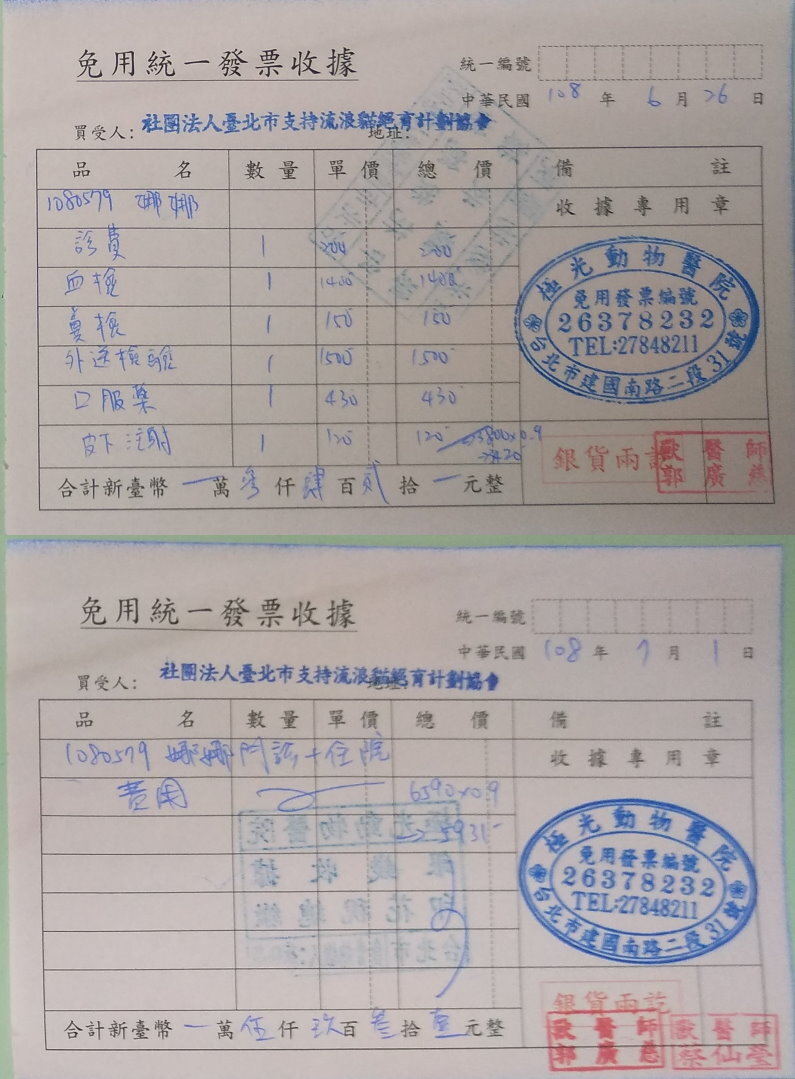 免用統一發票收據
統一編號
中華民國 108 年 6 月 26 日
買受人: 社團法人臺北市支持流浪貓絕育計劃協會
地址:
品名 數量 單價 總價 備註
1080579 娜娜 收據專用章
診費 1 200 200
血檢 1 1400 1400
糞檢 1 150 150
外送檢驗 1 1500 1500
口服藥 1 430 430
皮下注射 1 120 120 →3800x0.9
→3420
極光動物醫院
免用發票編號
26378232
TEL:27848211
台北市建國南路二段31號
銀貨兩訖
獸醫師
郭廣慈
合計新臺幣 一 萬 參 仟 肆 百 貳 拾 一 元整
免用統一發票收據
統一編號
中華民國 108 年 7 月 1 日
買受人: 社團法人臺北市支持流浪貓絕育計劃協會
品名 數量 單價 總價 備註
1080579 娜娜 門診+住院 收據專用章
費用 6590x0.9
→5931
極光動物醫院
免用發票編號
26378232
TEL:27848211
台北市建國南路二段31號
極光動物醫院
銀錢收據
印花稅總繳
銀貨兩訖
獸醫師
郭廣慈
獸醫師
合計新臺幣 一 萬 伍 仟 玖 百 參 拾 壹 元整